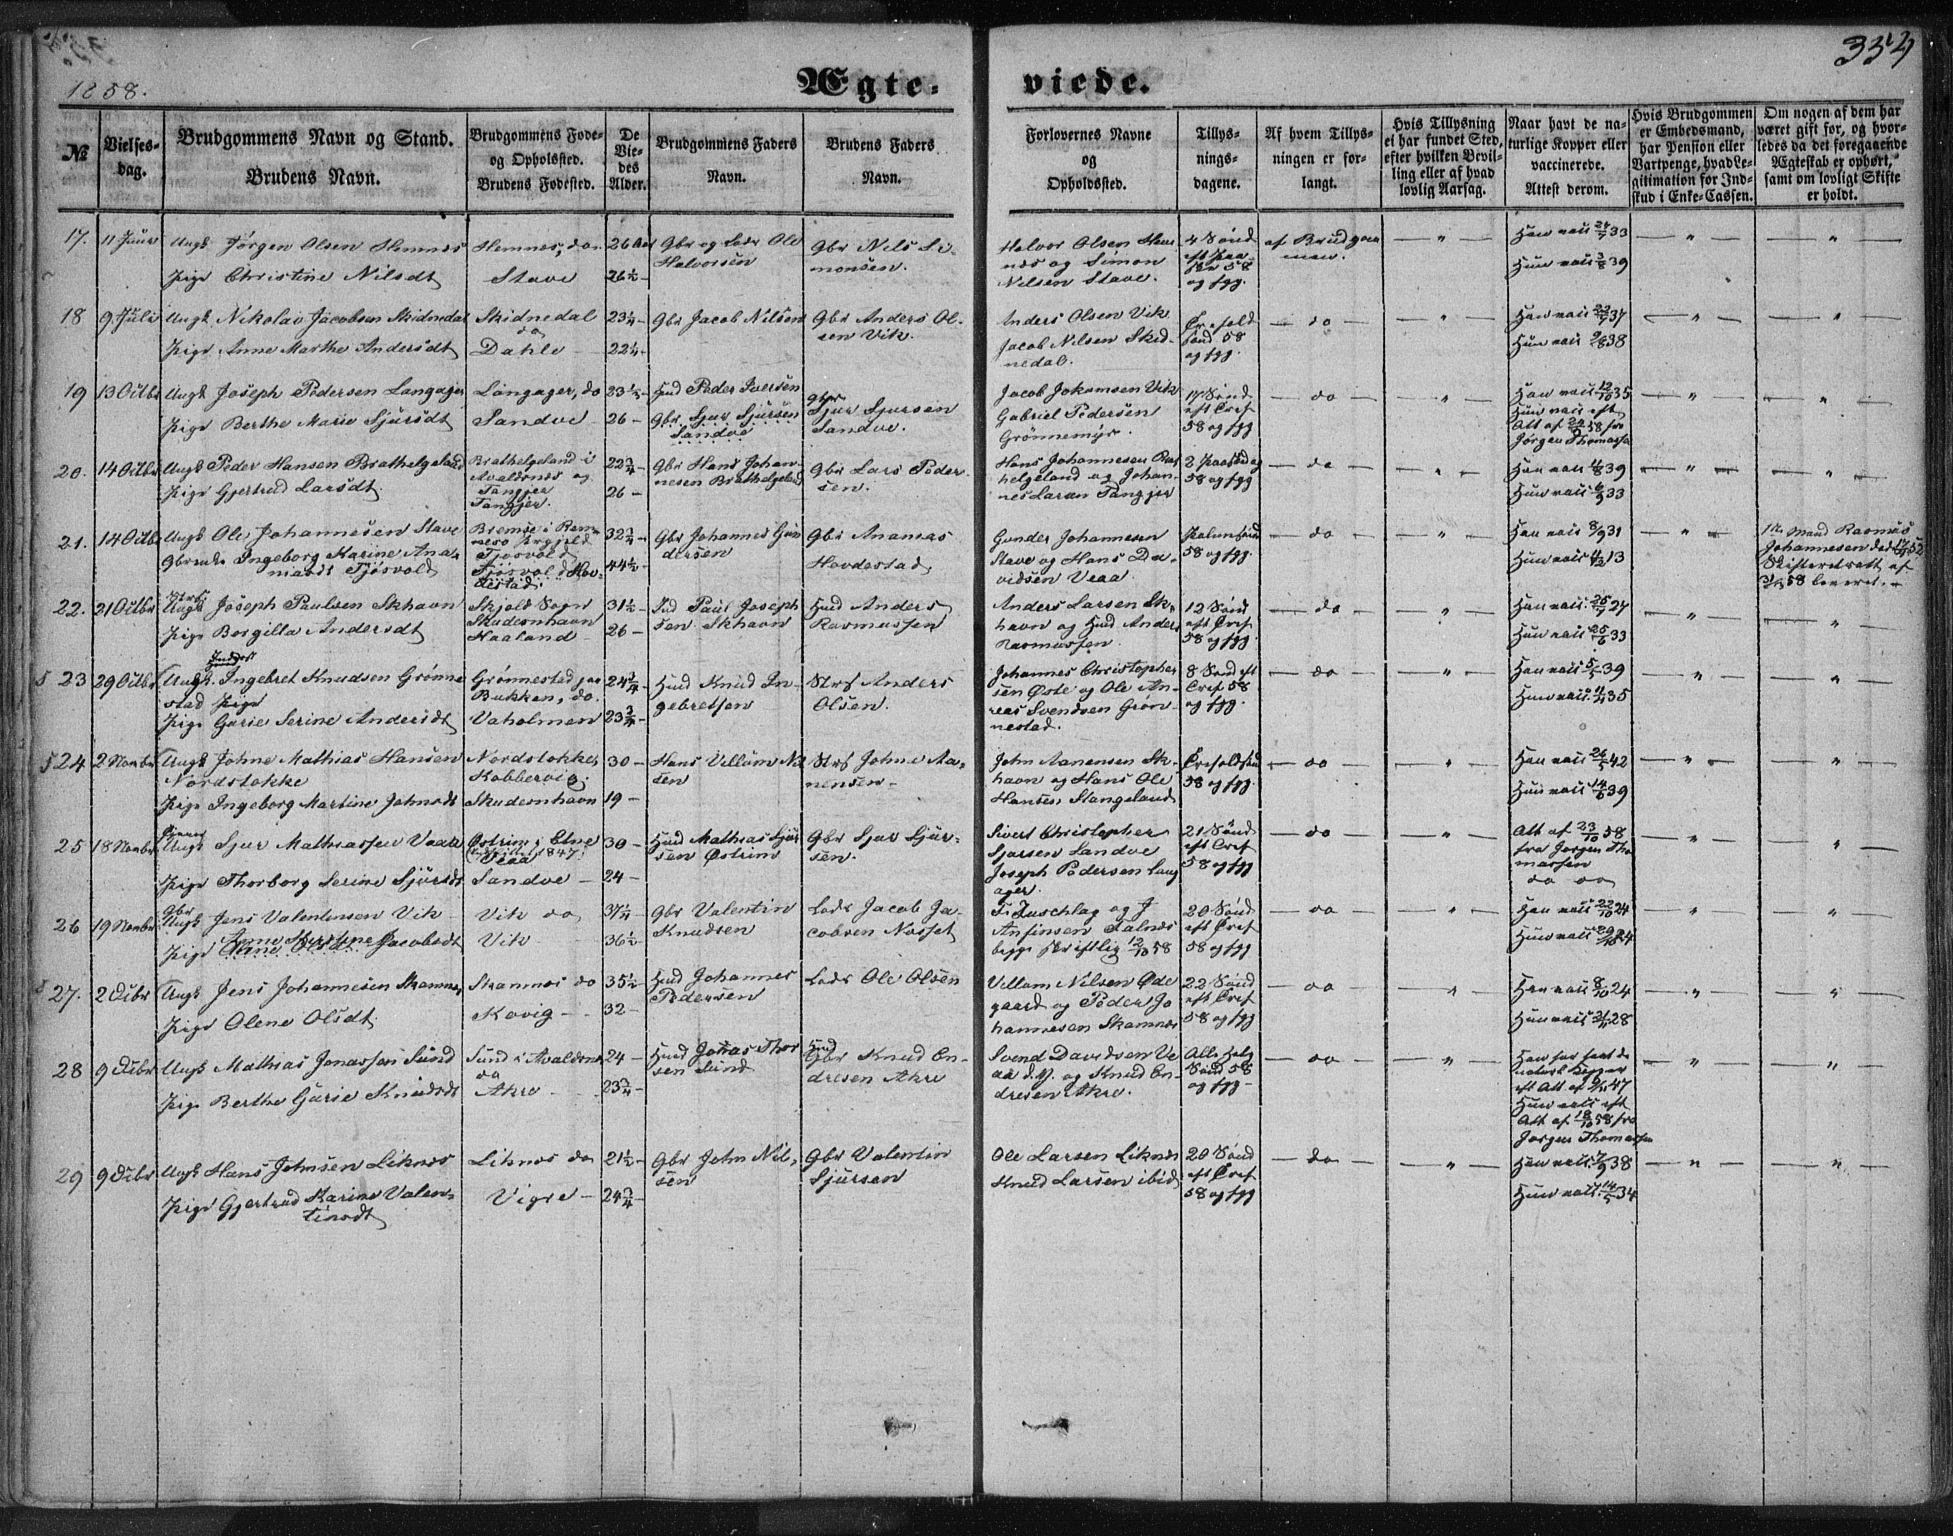 1858.
Ægteviede.
352
№
Vielsesdag.
Brudgommens Navn og Stand.
Brudens Navn.
Brudgommens Føde- og Opholdsted.
Brudens Fødested.
De Viedes Alder.
Brudgommens Faders Navn.
Brudens Faders Navn.
Forlovernes Navne og Opholdsted.
Tillysningsdagene.
Af hvem Tillysningen er forlangt.
Hvis Tillysning ei har fundet Sted, efter hvilken Bevilling eller af hvad lovlig Aarsag.
Naar havt de naturlige Kopper eller vaccinerede. Attest derom.
Hvis Brudgommen er Embedsmand, har Pension eller Vartpenge, hvad Legitimation for Indskud i Enke-Cassen.
Om nogen af dem har været gift før, og hvorledes da det foregaaende Ægteskab er ophørt, samt om lovligt Skifte er holdt.
17.
Ungk Jørgen Olsen Hemnes
Pige Christine Nilsdt
Hemnes, do
Stave
26 Aar
26½
Gbr og Lods Ole
Halvorsen
Gbr Nils Simonsen.
Halvor Olsen Hemnes og Simon
Nilsen Stave.
4 Sønd
58
og fgg.
af Brudgommen.
Han vacc 24/7 33
Hun vacc 3/8 39
18
9 Juli
Ungk Nikolai Jacobsen Skidnedal
Pige Anne Marthe Andersdt
Skidnedal
do
Dahle
23¼
22¼
Gbr Jacob Nilsen
Gbr Anders Olsen Vik.
Anders Olsen Vik
Jacob Nilsen Skidnedal.
58
og fgg.
do
Han vacc 37
Hun vacc 38
19
13 Octbr
Ungk Joseph Pedersen Langager
Pige Berthe Marie Sjursdt
Langager, do
Sandve
23½
26
Hmd Peder Iversen
Gbr Sjur Sjursen
Sandve
Gbr
Sjur Sjursen
Sandve.
Jacob Jokumsen Vik
Gabriel Pedersen
Grønnemyr.
17 Sønd
eft Tref
58 og fgg
do
Han vacc 12/10 35
Hun vacc eft
Att af 58 fra
Jørgen Thomassen
20.
14 Octbr
Ungk Peder Hansen Brathelgeland
Pige Gjertrud Larsdt.
Brathelgeland i
Avaldsnes og
Tangjer
Tangjer.
22¾
26
Gbr Hans Johannesen Brathelgeland
Gbr Lars Pedersen.
Hans Johannesen Brathelgeland og Johannes Larsen Tangjer
58 og fgg
do
Han vacc 39
Hun vacc 33
21.
14 Octbr
Ungk Ole Johannesen Stave
Gbrenke Ingeborg Karine Ananiasdt Tjøsvold
Tjøsvold
Tjøsvold Hovdestad.
32¾
44½
Gbr Johannes Gundersen
Gbr Ananias
Hovdestad
Gunder Johannesen
Stave og Hans Davidsen Veaa
58 og fgg.
do
Han vacc 8/9 31
Hun vacc 13
1ste Mand Rasmus
Johannesen død 52
Skifteretsatt af
58 leveret.
22.
21 Octbr
Ungk Joseph Paulsen Skhavn
Pige Borgilla Andersdt
Skjold Sogn
Skudesnhavn
Haaland
31½
26
Ind Paul Josephsen Skhavn
Hmd Anders
Rasmussen
Anders Larsen Skhavn og Hmd Anders
Rasmussen
12 Sønd
eft Tref
58 og fgg
do
Han vacc 25/7 27
Hun vacc 25/6 33
23
29 Octbr
Ungk Ingebret Knudsen Grønnestad
Pige Garie Serine Andersdt
Grønnestad paa
Bukken, do.
Vaholmen
24¾
23¾
Hmd Knud Ingebretsen
Strf Anders
Olsen.
Johannes Christophersen Øste og Ole Andreas Svendsen Grønnestad.
8 Sønd eft
Tref 58
og fgg.
do
Han vacc 39
Hun vacc 35
24
2 Novbr
Ungk Johne Mathias Hansen
Nordstokke
Pige Ingeborg Martine Johnsdt
Nordstokke,
Kobbervig.
Skudesnhavn
30
19
Hans Villum Nilsen
Strf Johne Aanensen
John Aanensen Skhavn og Hans Ole
Hansen Stangeland
58 og fgg.
do
Han vacc 26/5 42
Hun vacc 14/6 39
25
18 Novbr
Ungk Sjur Mathiassen Veaa
Pige Thorborg Serine Sjursdt
Østrim i Etne
Veaa
Sandve
30
24
Hmd Mathias Sjursen Østrim
Gbr Sjur Sjursen.
Sivert Christopher
Sjursen Sandve
Joseph Pedersen Langager.
21 Sønd
eft Tref
58 og fgg
do
Att af 23/10 58
fra Jørgen Thomassen
do do
26
19 Novbr
Gbr
Ungk Jens Valentinsen Vik
Pige Jacobsdt
Vik do
Vik
37¼
36½
Gbr Valentin
Knudsen
Lods Jacob Jacobsen Nesset
Anfinsen Falnes
begge skriftlig 12/10 58
20 Sønd
eft Tref
58 og fgg
do
Han vacc 22/10 24
Hun vacc 29/10 24
27.
2 Decbr
Ungk Jens Johannesen Skamnes
Pige Olene Olsdt.
Skamnes do
Kovig
35½
32
Hmd Johannes
Pedersen
Lods Ole Olsen
Villum Nilsen Ødegaard og Peder Johannesen Skamnes
22 Sønd
eft Tref
58 og fgg
do
Han vacc 8/10 24
Hun vacc 28
28
9 Decbr
Ungk Mathias Jonassen Sund
Pige Berthe Garie Knudsdt
Sund i Avaldsnes
do
Akre
24
23¾
Hmd Jonas Thorsen Sund
Hmd
Gbr Knud Endresen Akre
Svend Davidsen Veaa d.y. og Knud Endresen Akre.
Alle Helg
Sønd 58
og fgg.
do
Han har havt de
naturl Kopper
eft Att af 47
Hun vacc eft
Att af 18/10 58 fra
Jørgen Thomassen
29
9 Decbr
Ungk Hans Johnsen Liknes
Pige Gjertrud Karine Valentinsdt
Liknes do
Vigre
21½
24¾
Gbr John Nilsen
Gbr Valentin
Sjursen
Ole Larsen Liknes
Knud Larsen ibid
20 Sønd
eft Tref
58 og fgg
do
Han vacc 38
Hun vacc 14/5 34